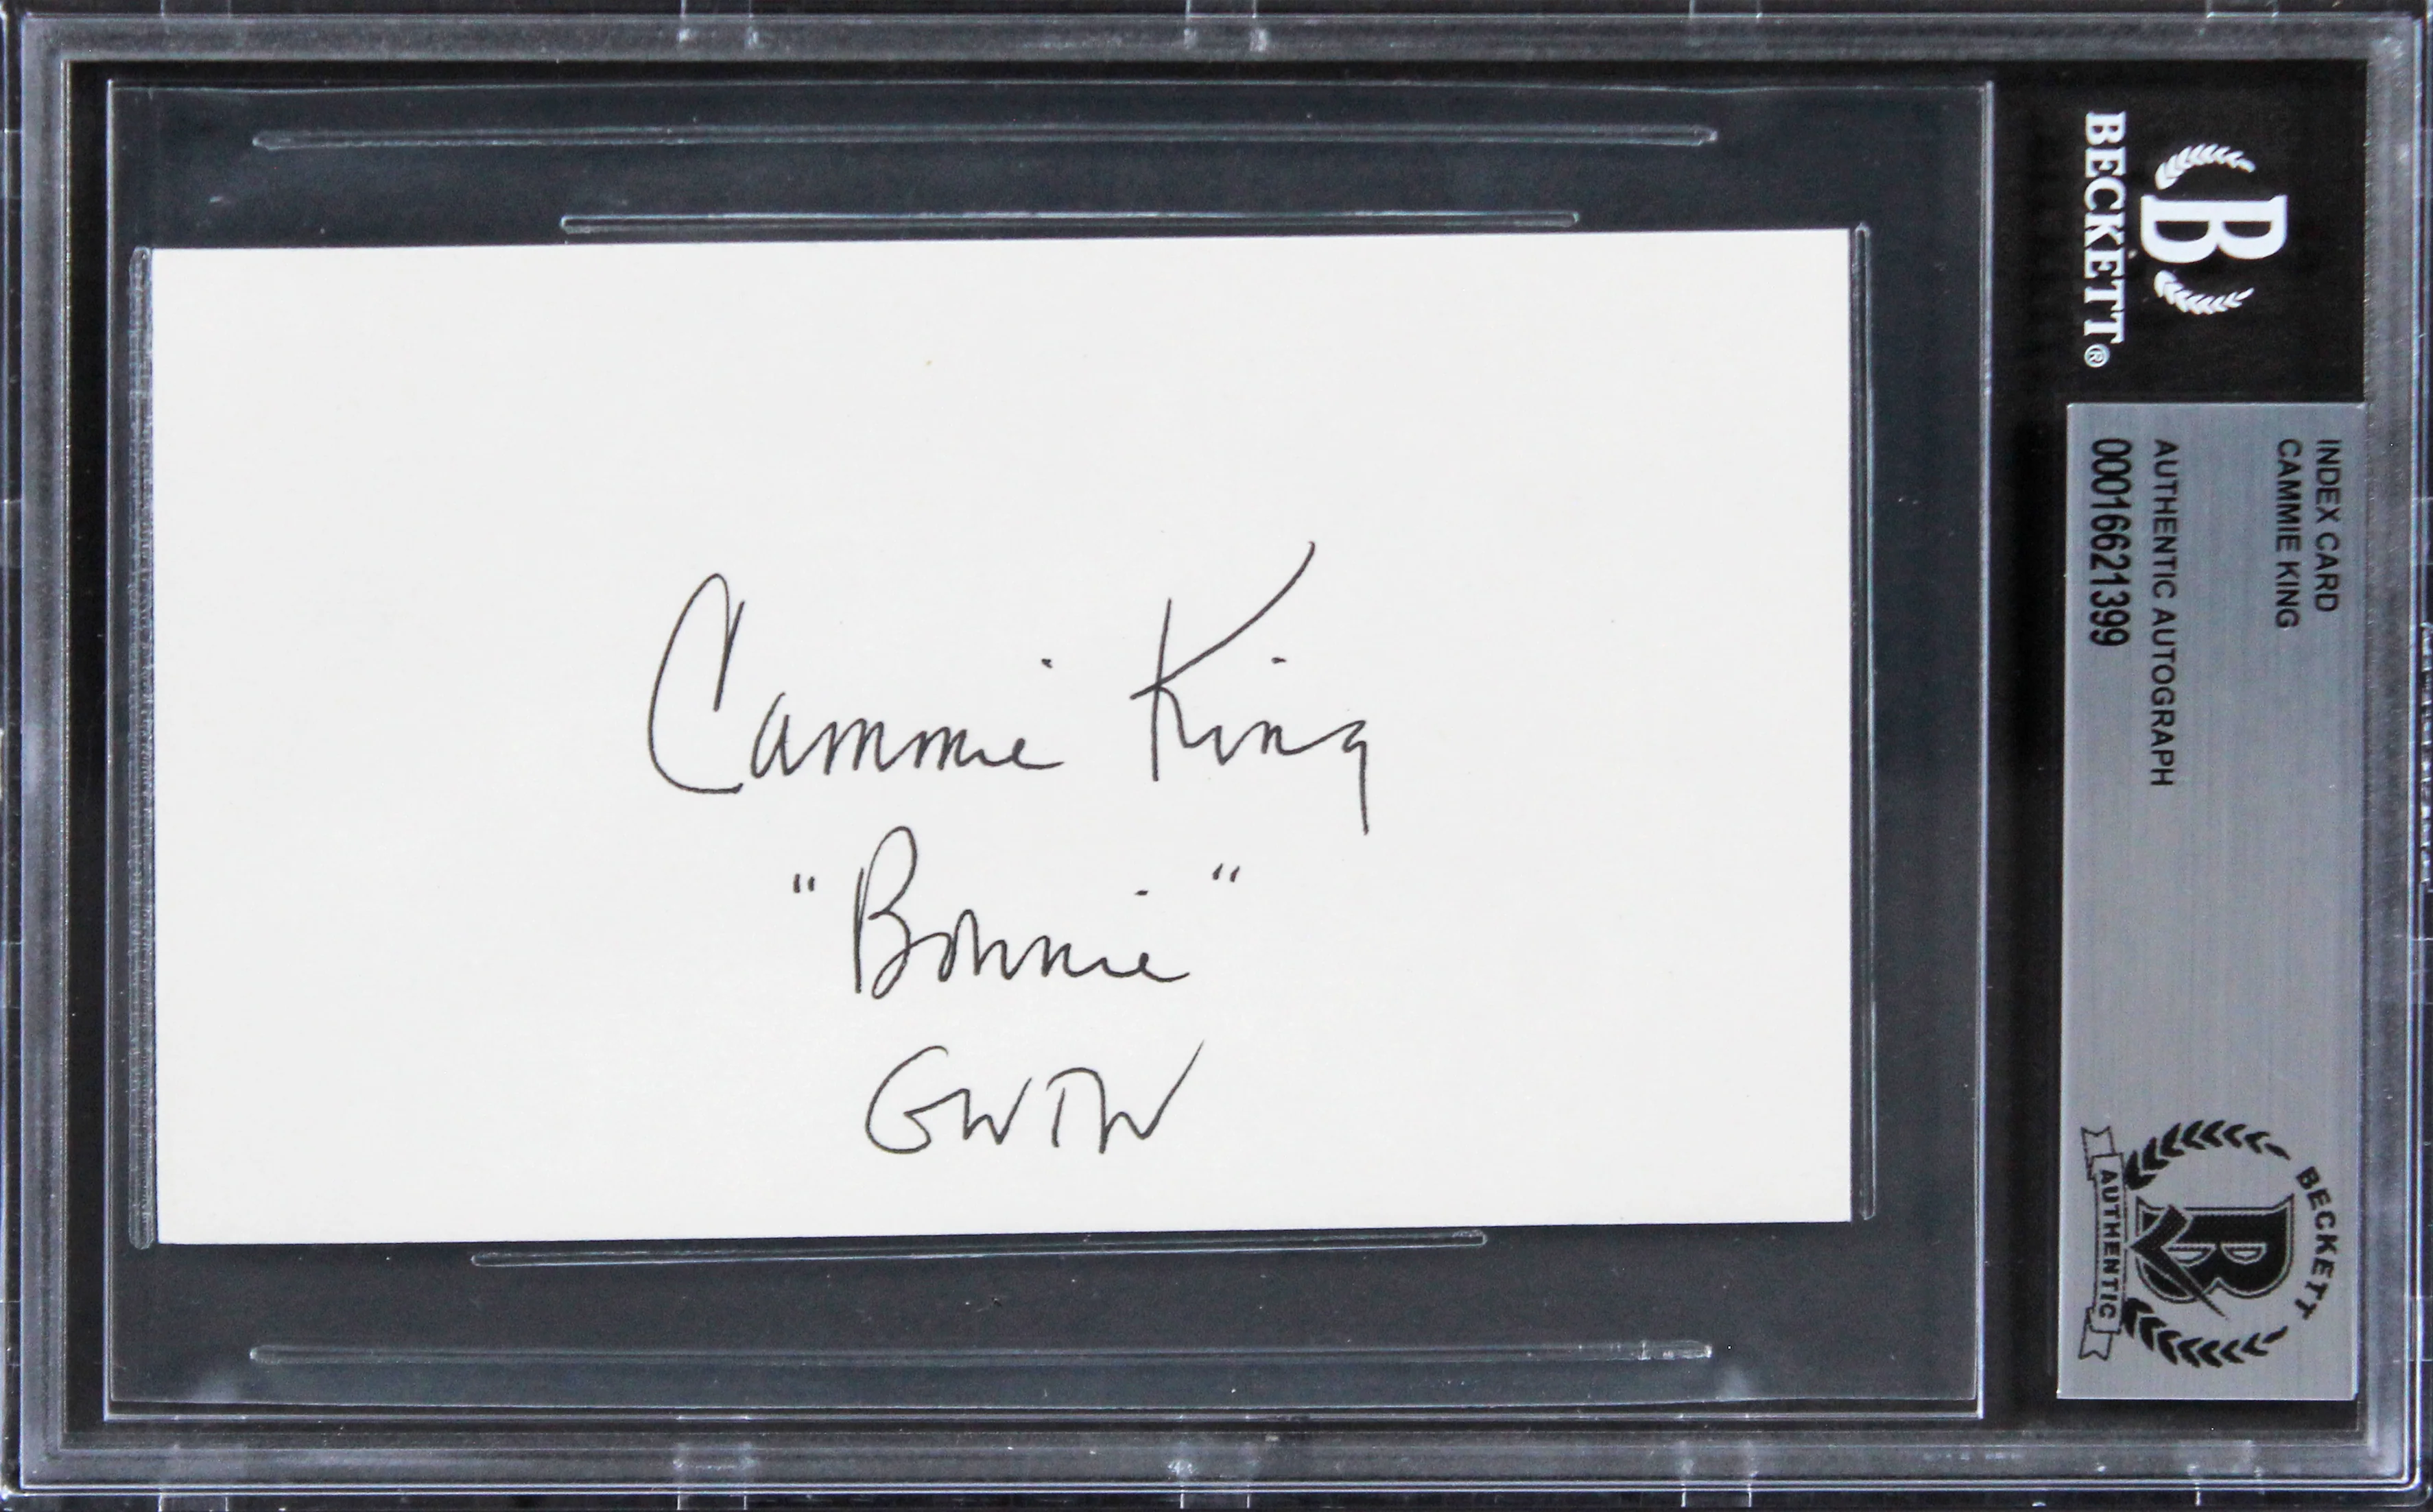 Cammie King
"Bonnie"
GWTW
BECKETT®
B
INDEX CARD
CAMMIE KING
AUTHENTIC AUTOGRAPH
00016621399
BECKETT
B
AUTHENTIC